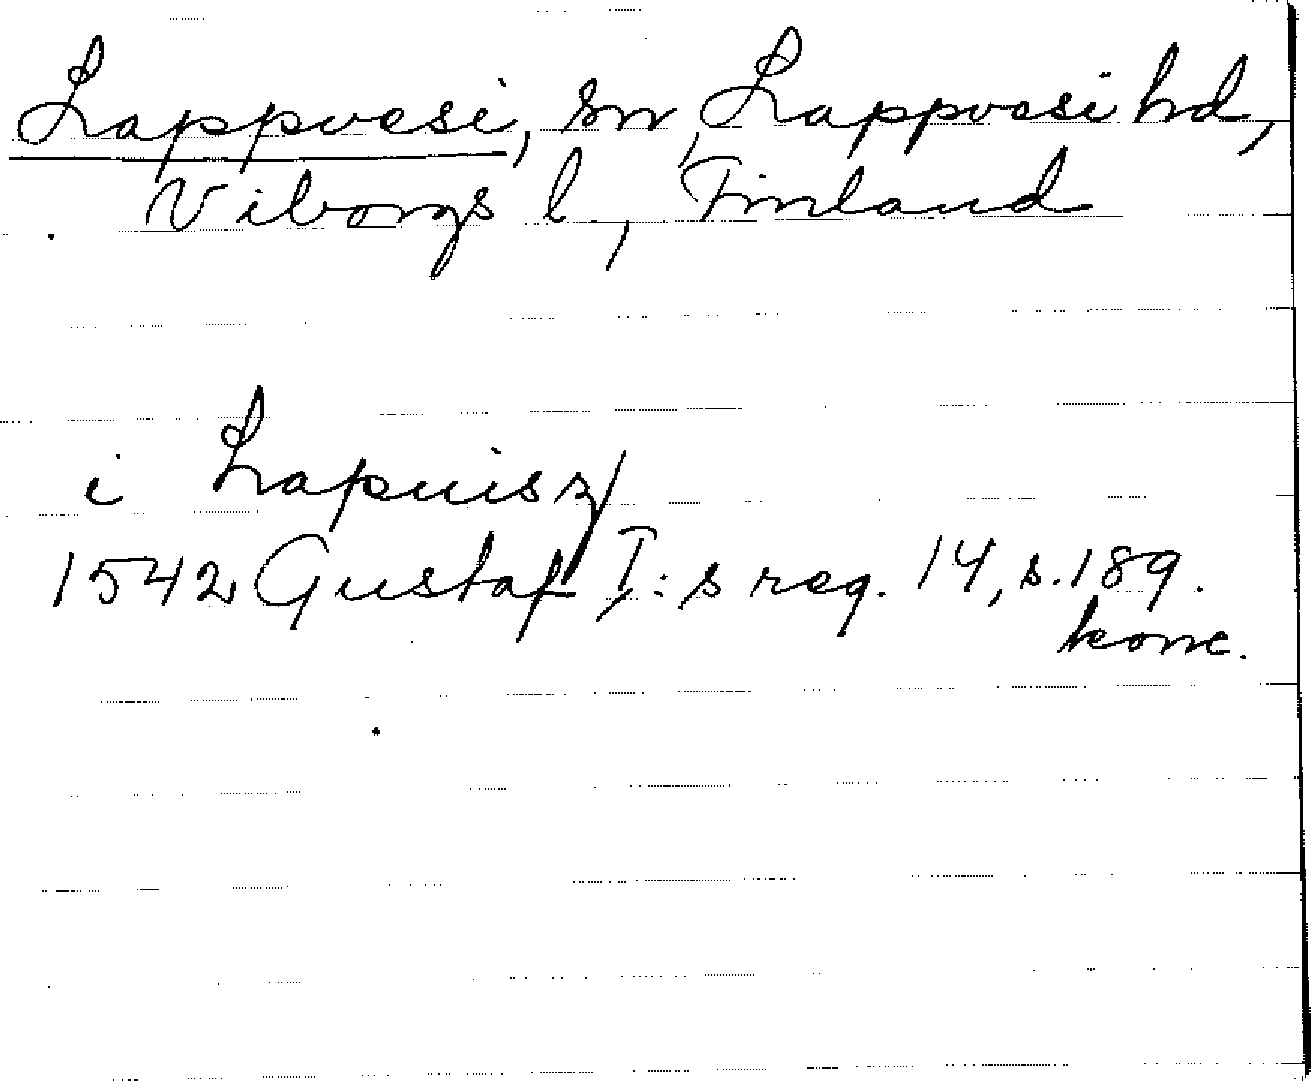 Lappvesi, sn, Lappvesi hd,
Viborgs l., Finland
i Lapuisz/
1542 Gustaf I:s reg. 14, s. 189.
konc.